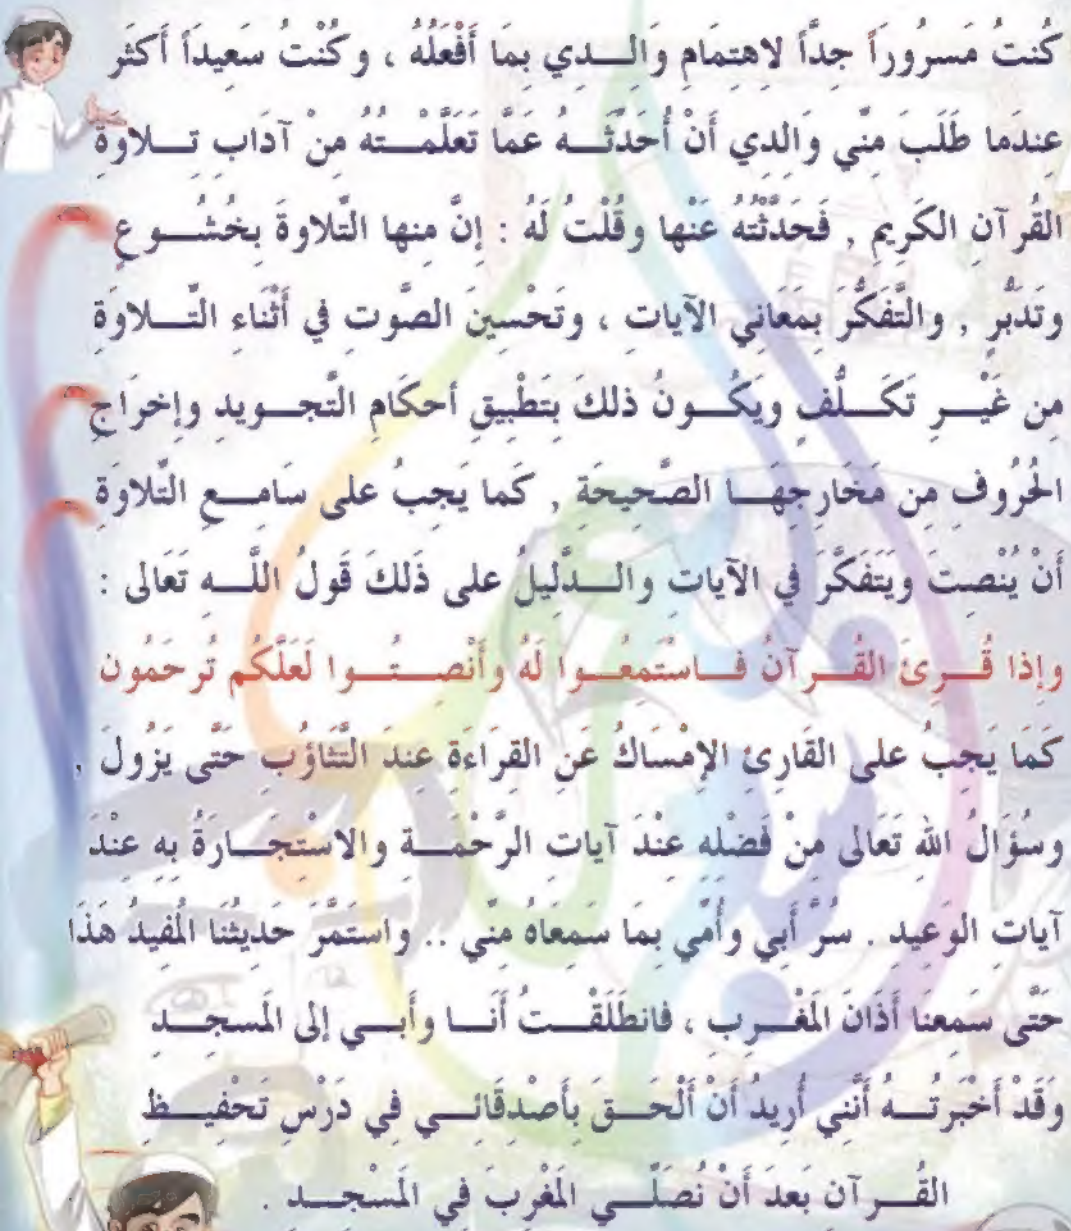 كُنتُ مَسرُوراً جِدّاً لاهتِمَامِ وَالِــدِي بِمَا أَفْعَلُهُ ، وكُنْتُ سَعِيدَاً أَكثَر
عِندَما طَلَبَ مِنِّي وَالِدِي أَنْ أُحَدِّثَــهُ عَمَّا تَعَلَّمْــتُهُ مِنْ آدَابِ تِــلاوَةِ
القُرآنِ الكَرِيمِ , فَحَدَّثْتُهُ عَنْها وقُلْتُ لَهُ : إنَّ مِنها التِّلاوةَ بِخُشُــوعٍ
وتَدَبُّرٍ , والتَّفَكُّرَ بِمَعَانِي الآيَاتِ ، وتَحْسِينَ الصَّوتِ فِي أَثْنَاءِ التِّــلاوَةِ
مِن غَيْــرِ تَكَــلُّفٍ ويَكُــونُ ذلكَ بِتَطْبِيقِ أحكَامِ التَّجــوِيدِ وإِخرَاجِ
الحُرُوفِ مِن مَخَارِجِهَــا الصَّحِيحَةِ , كَما يَجِبُ على سَامِــعِ التِّلاوَةِ
أَنْ يُنْصِتَ ويَتَفَكَّرَ فِي الآيَاتِ والــدَّلِيلُ على ذَلكَ قَولُ اللَّــهِ تَعَالى :
وإِذا قُــرِئَ القُــرآنُ فَــاسْتَمِعُــوا لَهُ وأَنْصِــتُــوا لَعَلَّكُم تُرحَمُون
كَمَا يَجِبُ على القَارِئِ الإِمْسَاكُ عَنِ القِرَاءَةِ عِندَ التَّثَاؤُبِ حَتَّى يَزُولَ ,
وسُؤَالُ اللهِ تَعَالى مِنْ فَضْلِهِ عِنْدَ آيَاتِ الرَّحْمَــةِ والاسْتِجَــارَةُ بِهِ عِنْدَ
آيَاتِ الوَعِيدِ . سُرَّ أَبِي وأُمِّي بِمَا سَمِعَاهُ مِنِّي .. واستَمَّرَ حَدِيثُنَا المُفِيدُ هَذَا
حَتَّى سَمِعنَا أَذَانَ المَغْــرِبِ ، فانطَلَقْــتُ أَنَــا وأَبــي إلى المَسجِــدِ
وَقَدْ أَخْبَرتُــهُ أَنَّنِي أُرِيدُ أَنْ أَلْحَــقَ بِأَصْدِقَائِــي فِي دَرْسِ تَحْفِيــظِ
القُــرآنِ بَعدَ أَنْ نُصَلِّــي المَغْرِبَ فِي المَسْجِــدِ .